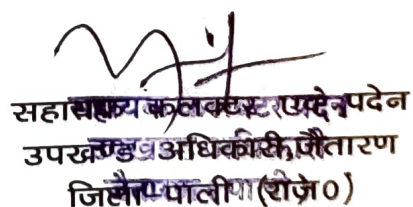 सहायक कलक्टर एवं पदेन
उपखण्ड अधिकारी, जैतारण
जिला-पाली (राज०)